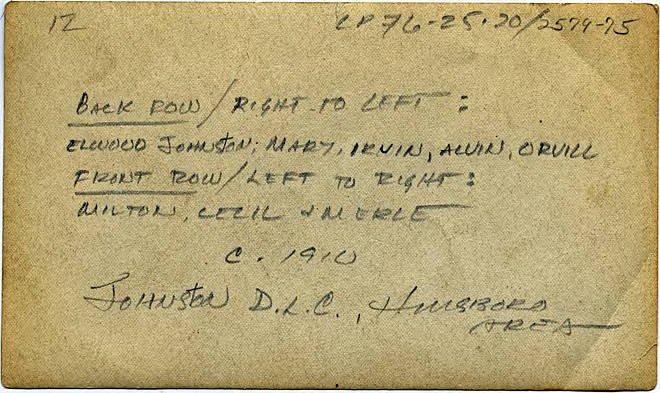 12 LP76-25.20/2579-75
BACK ROW / RIGHT TO LEFT :
ELWOOD JOHNSTON; MARY, IRVIN, ALVIN, ORVILL
FRONT ROW / LEFT TO RIGHT :
MILTON, CECIL & MERLE
C. 1910
JOHNSTON D.L.C., HILLSBORO
AREA